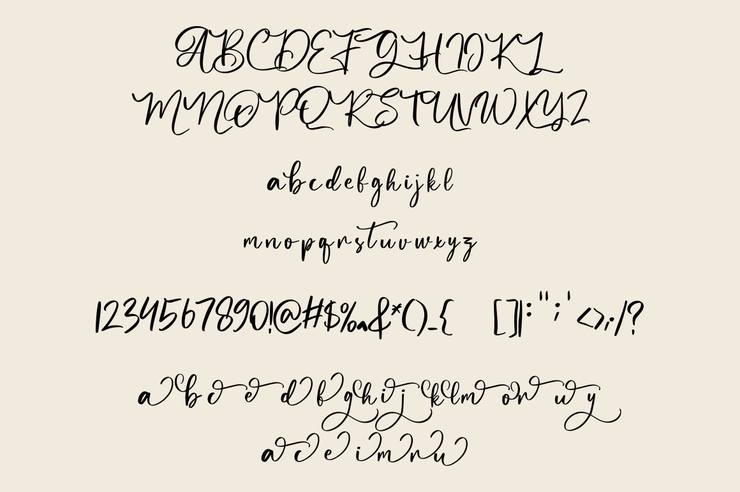 ABCDEFGHIJKL
MNOPQRSTUVWXYZ
abcdefghijkl
mnopqrstuvwxyz
1234567890!@#$%^&*()_{ []|:";'<>,./?
a b c e d f g h i j k l m o n u y
a c e i m r u